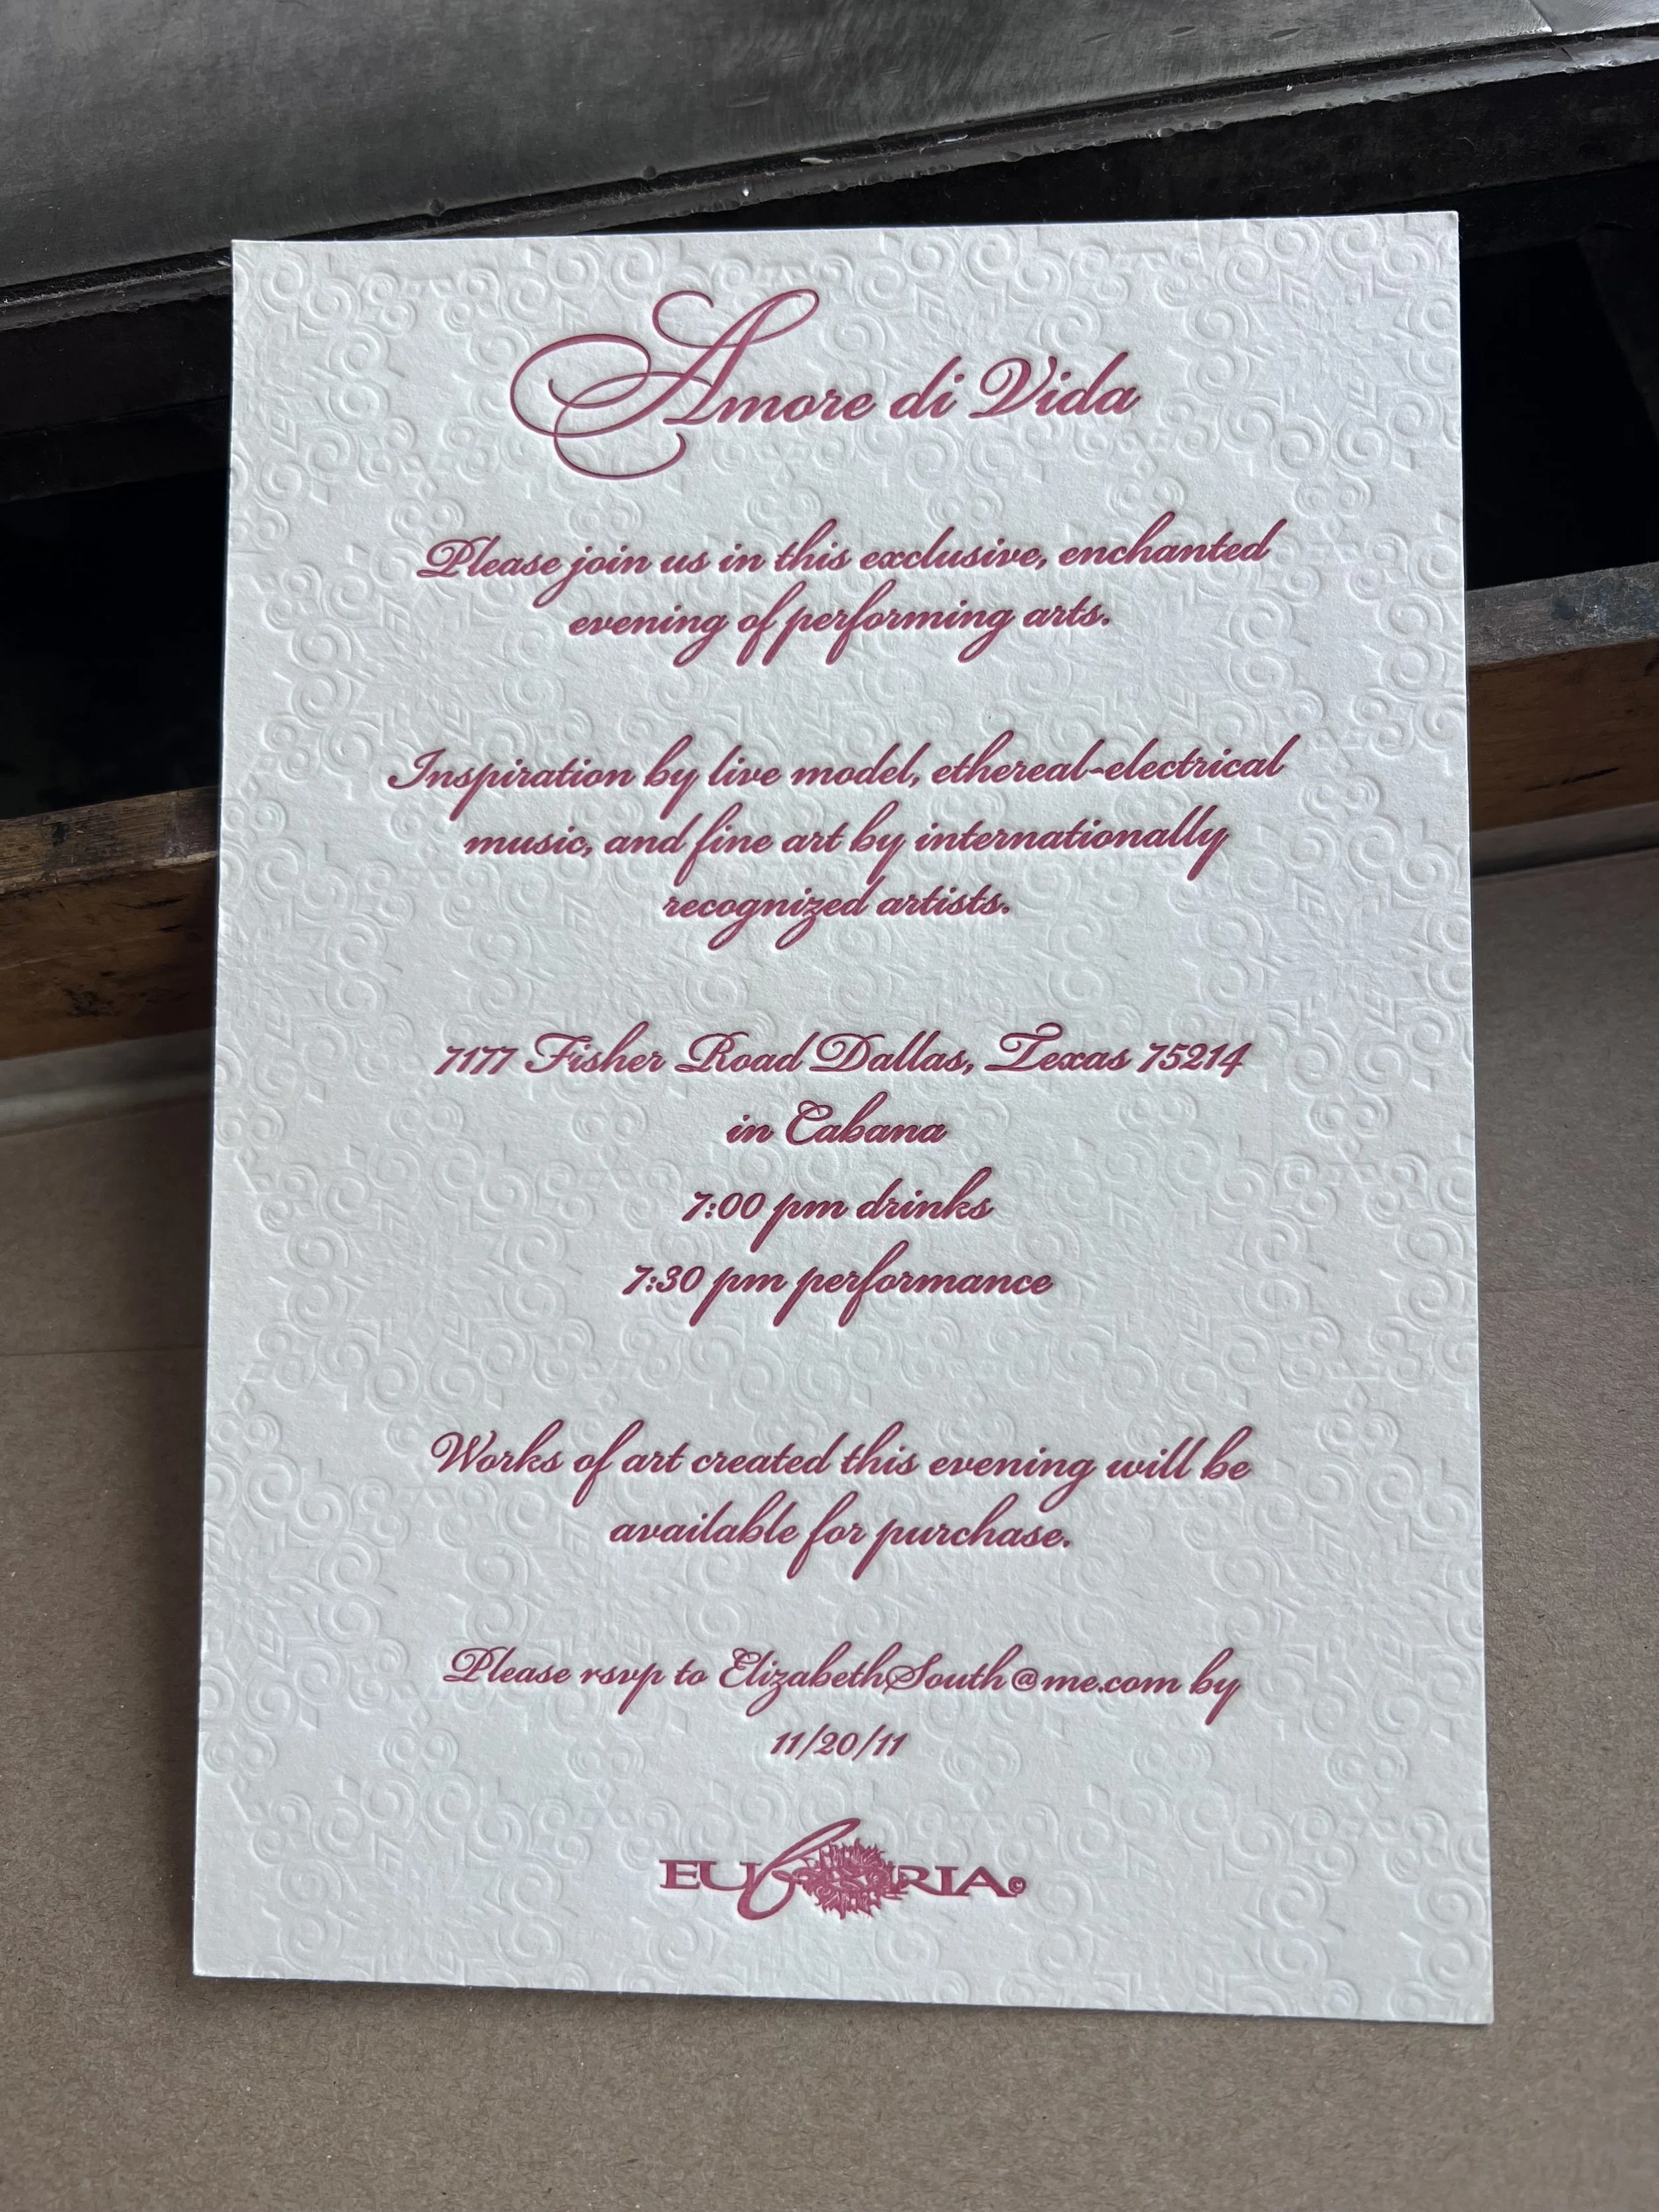 Amore di Vida
Please join us in this exclusive, enchanted
evening of performing arts.
Inspiration by live model, ethereal-electrical
music, and fine art by internationally
recognized artists.
7177 Fisher Road Dallas, Texas 75214
in Cabana
7:00 pm drinks
7:30 pm performance
Works of art created this evening will be
available for purchase.
Please rsvp to ElizabethSouth@me.com by
11/20/11